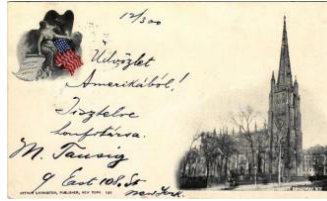 12/3 00
Üdvözlet
Amerikából!
Tisztelve
honfitársa.
M. Tausig
9 East 108. St
New York.
ARTHUR LIVINGSTON, PUBLISHER, NEW YORK.